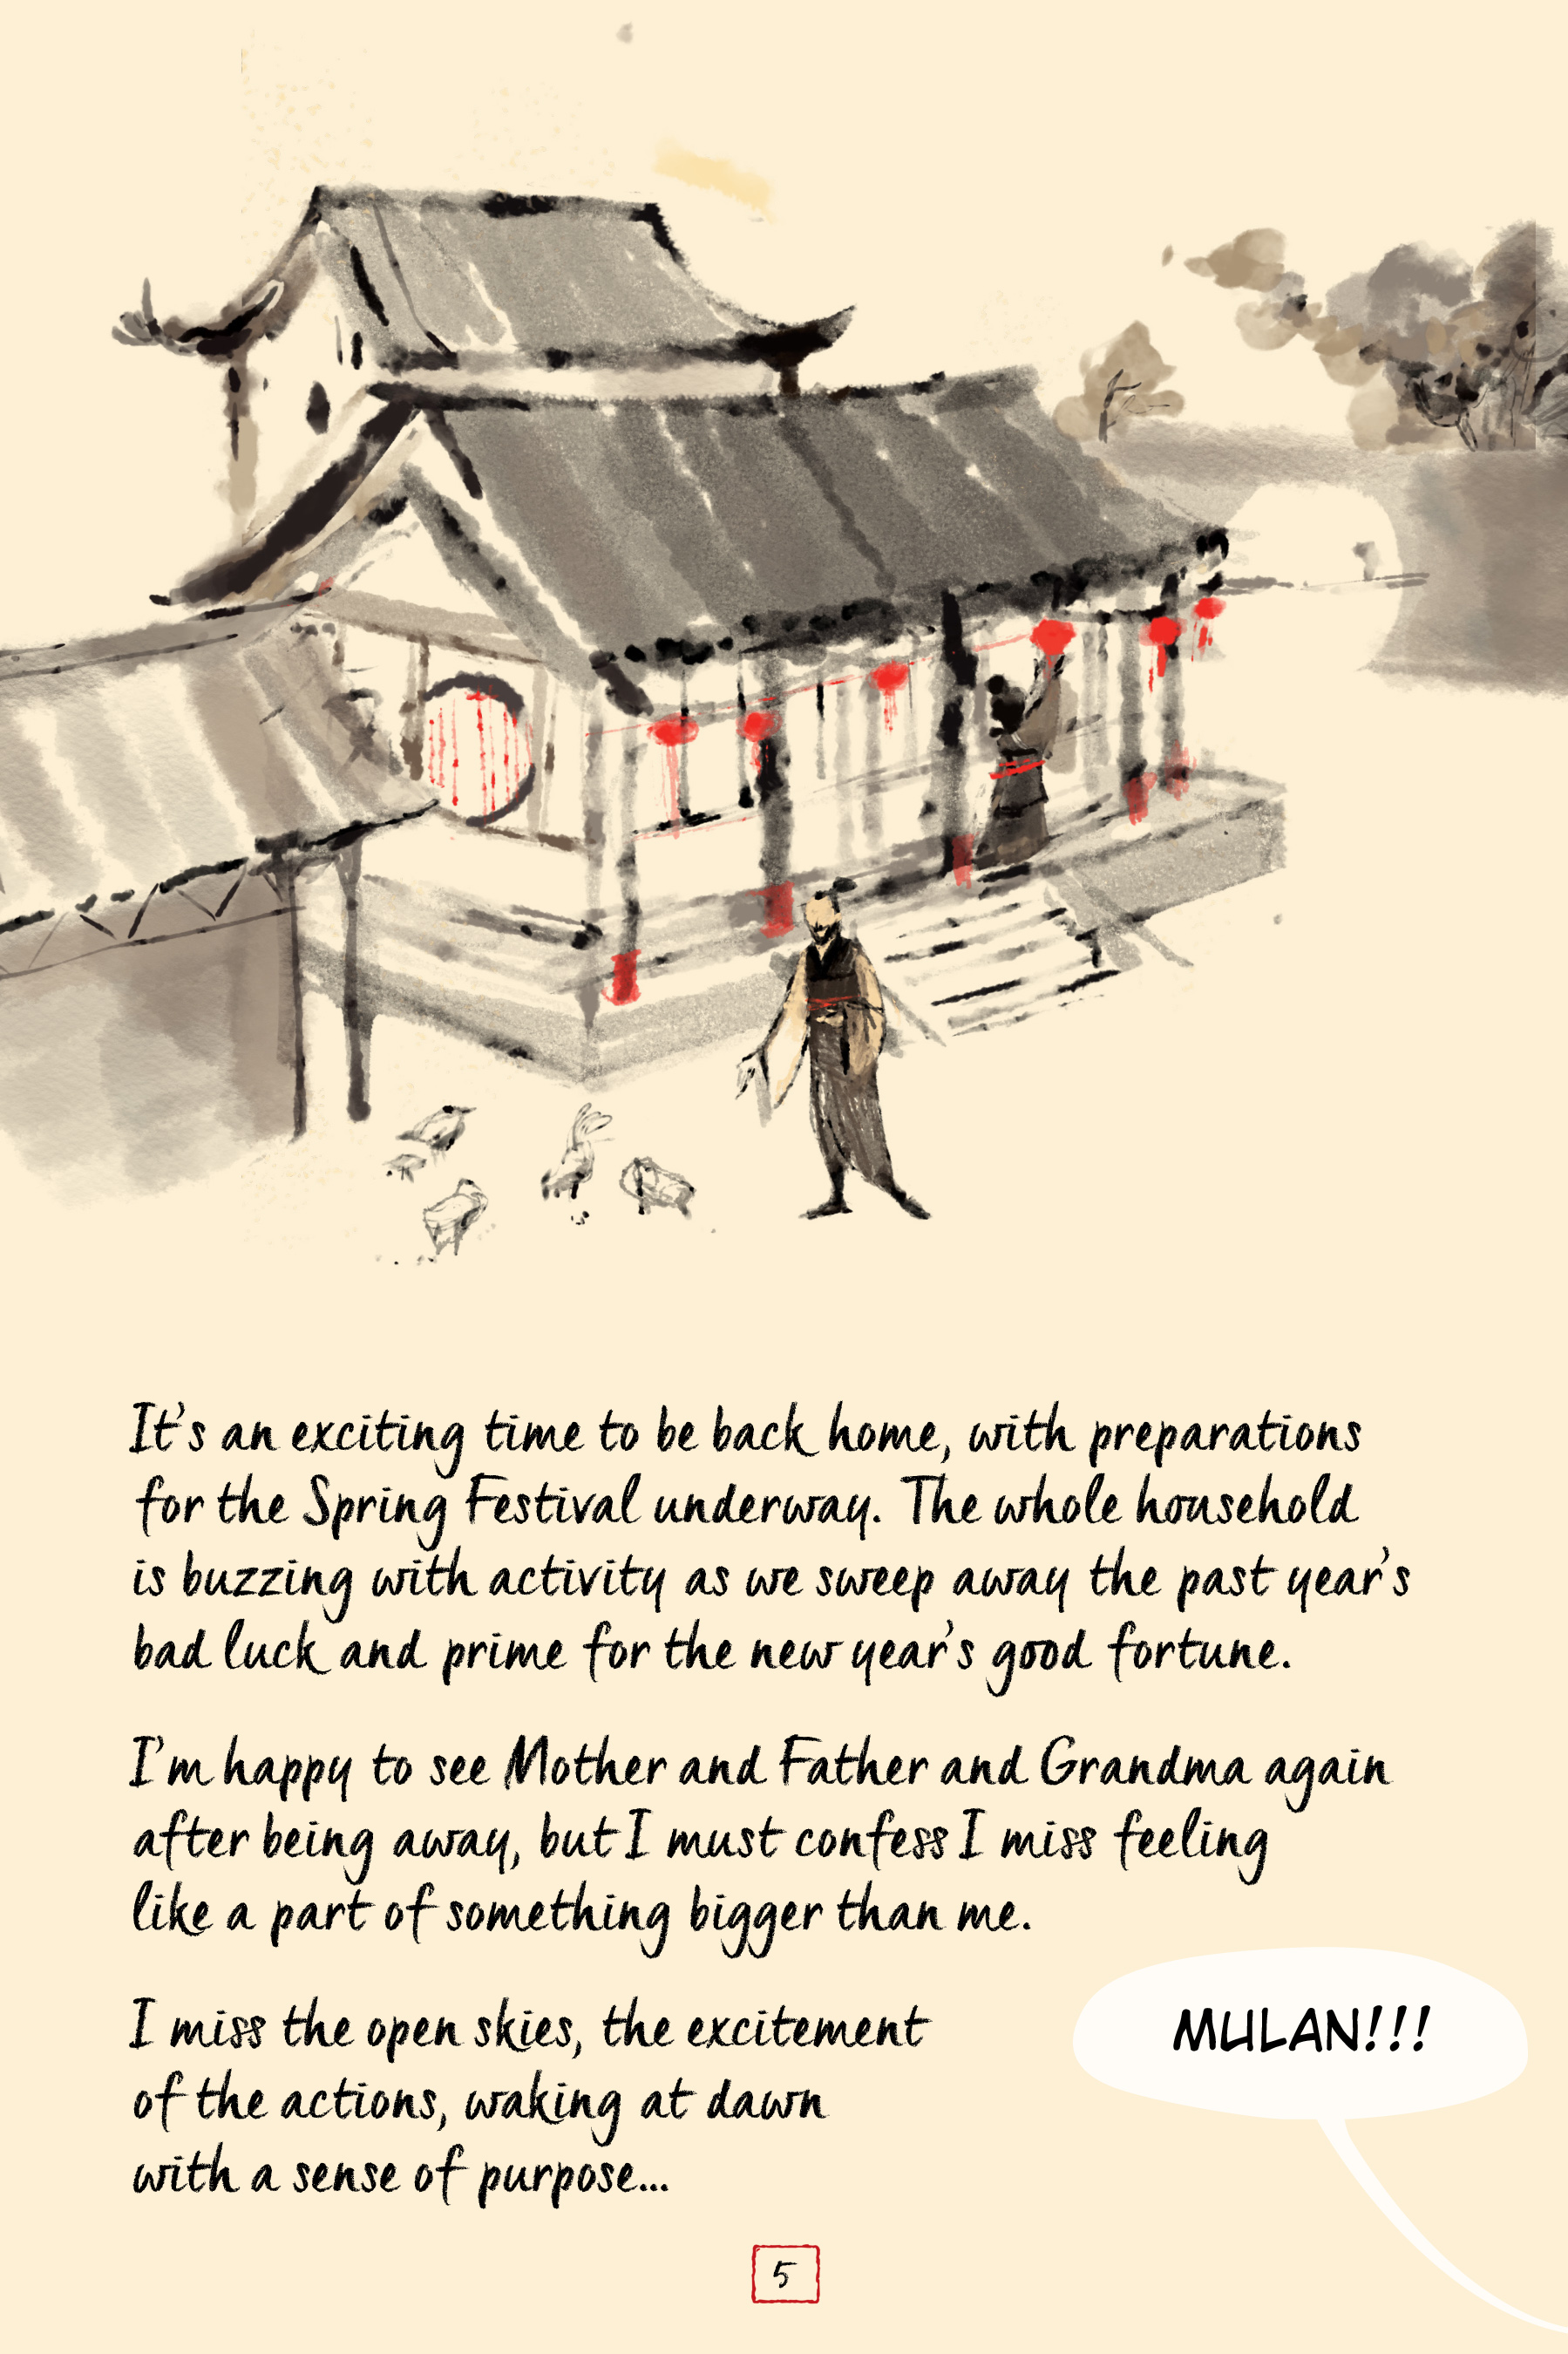 It's an exciting time to be back home, with preparations
for the Spring Festival underway. The whole household
is buzzing with activity as we sweep away the past year's
bad luck and prime for the new year's good fortune.
I'm happy to see Mother and Father and Grandma again
after being away, but I must confess I miss feeling
like a part of something bigger than me.
I miss the open skies, the excitement
of the actions, waking at dawn
with a sense of purpose...
MULAN!!!
5